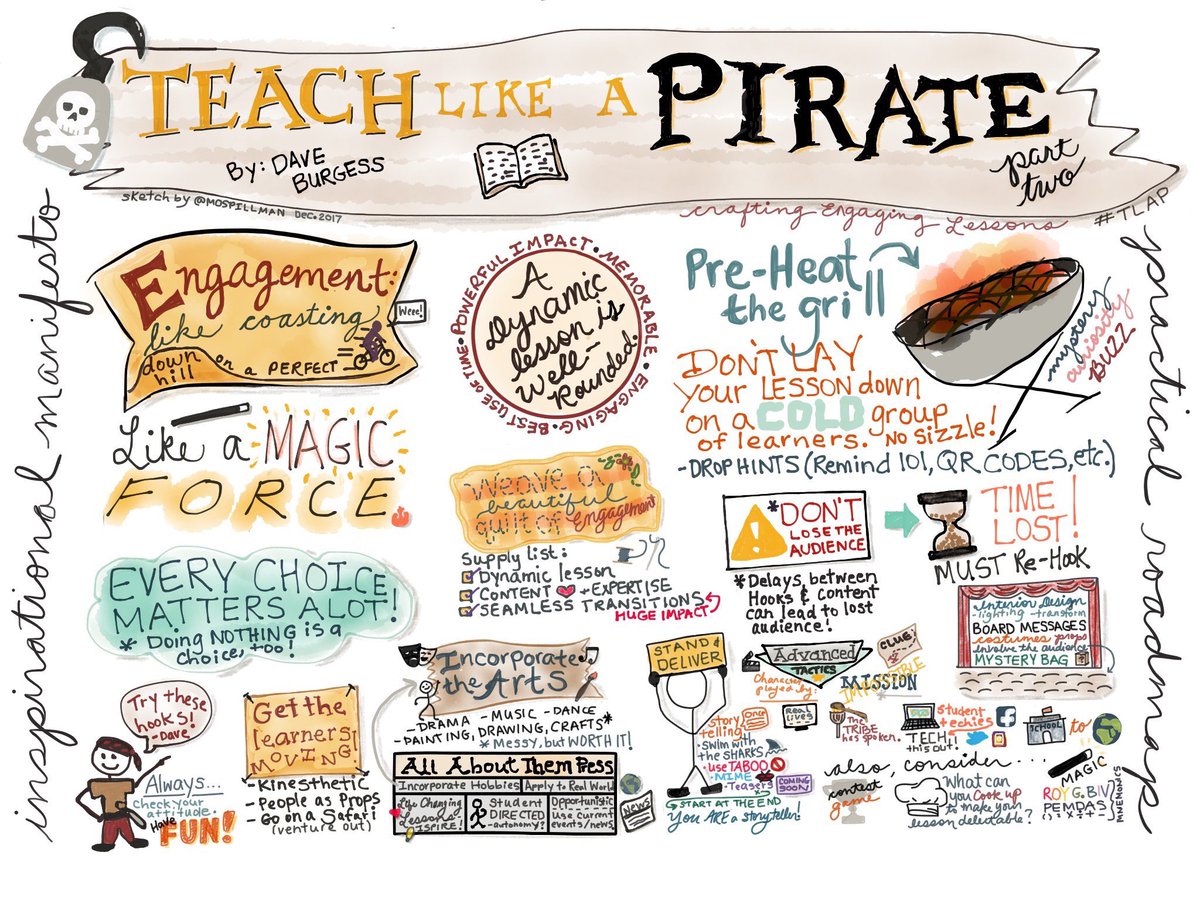 TEACH LIKE A PIRATE
part
two
By: DAVE
BURGESS
sketch by @MOSPILLMAN DEC. 2017
crafting Engaging Lessons
#TLAP
inspirational manifesto
practical roadmaps
Engagement:
like coasting
down
hill
on a PERFECT =
Weee!
Like a MAGIC
FORCE.
EVERY CHOICE
MATTERS A LOT!
* Doing NOTHING is a
choice, too!
POWERFUL IMPACT • MEMORABLE • ENGAGING • BEST USE OF TIME •
A
Dynamic
lesson is
Well-
Rounded.
Pre-Heat
the grill
mystery
curiosity
BUZZ
DON'T LAY
your LESSON down
on a COLD group
of learners. NO SIZZLE!
-DROP HINTS (Remind 101, QR CODES, etc.)
Weave a
beautiful
quilt of engagement
Supply list:
Dynamic lesson
CONTENT + EXPERTISE
SEAMLESS TRANSITIONS
HUGE IMPACT
*DON'T
LOSE THE
AUDIENCE
TIME
LOST!
MUST Re-Hook
*Delays between
Hooks & content
can lead to lost
audience!
Interior Design
-lighting -transform
BOARD MESSAGES
costumes props
involve the audience
MYSTERY BAG
Try these
hooks!
-Dave
Always...
check your
attitude.
Have
FUN!
Get the
learners
MOVING
-Kinesthetic
-People as Props
-Go on a Safari
(venture out)
Incorporate
the Arts
-DRAMA -MUSIC -DANCE
-PAINTING, DRAWING, CRAFTS*
*Messy, but WORTH IT!
All About Them Press
Incorporate Hobbies
Apply to Real World
Life Changing
Lessons
INSPIRE!
Student
DIRECTED
-autonomy?
Opportunistic
use current
events/news
NEWS
STAND &
DELIVER
Story
telling
Once
SWIM WITH
the SHARKS
-use TABOO
-MIME
-Teasers
COMING
SOON
START AT THE END
You ARE a storyteller!
Advanced
TACTICS
CLUE!
IMPOSSIBLE
MISSION
Character
played by:
Real
lives
The
TRIBE
has spoken.
TECH
this out!
student
techies
SCHOOL
to
also, consider...
contest
game
What can
you Cook up
to make your
lesson delectable?
MAGIC
ROY G. BIV
PEMDAS
MNEMONICS